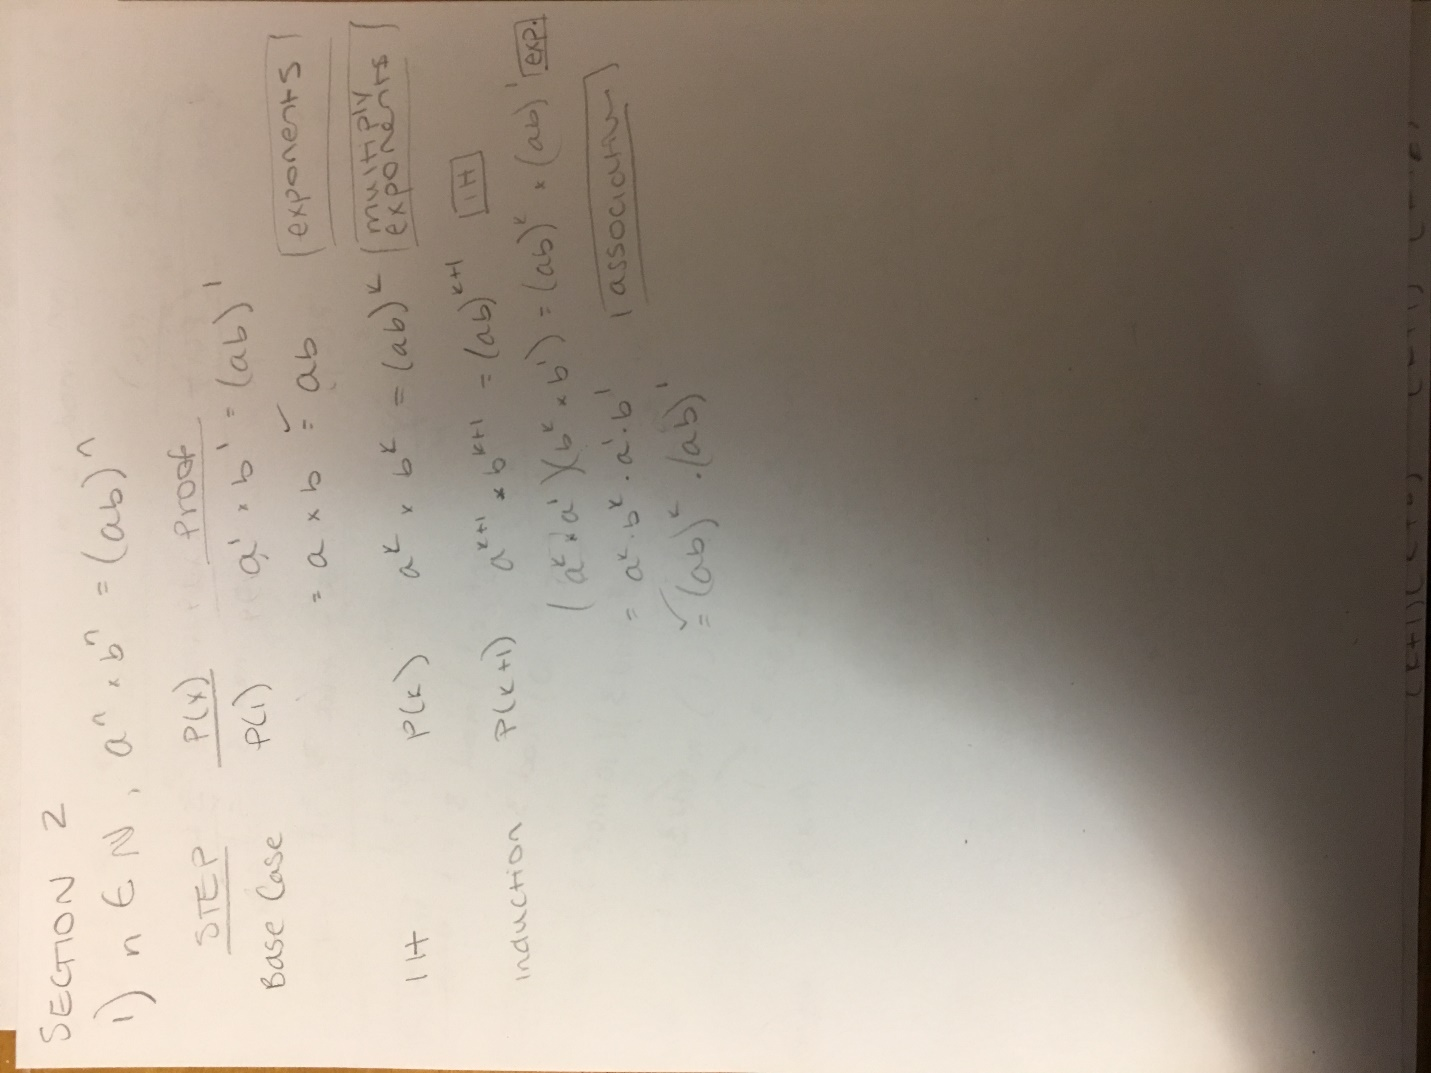 SECTION 2
1) n ∈ N, aⁿ × bⁿ = (ab)ⁿ
STEP P(x) Proof
Base Case P(1) a¹ × b¹ = (ab)¹
= a × b = ab ✓ exponents
IH P(k) aᵏ × bᵏ = (ab)ᵏ multiply exponents
Induction P(k+1) aᵏ⁺¹ × bᵏ⁺¹ = (ab)ᵏ⁺¹ IH
(aᵏ × a¹)(bᵏ × b¹) = (ab)ᵏ × (ab)¹ exp.
= aᵏ · bᵏ · a¹ · b¹ associative
= (ab)ᵏ · (ab)¹ ✓